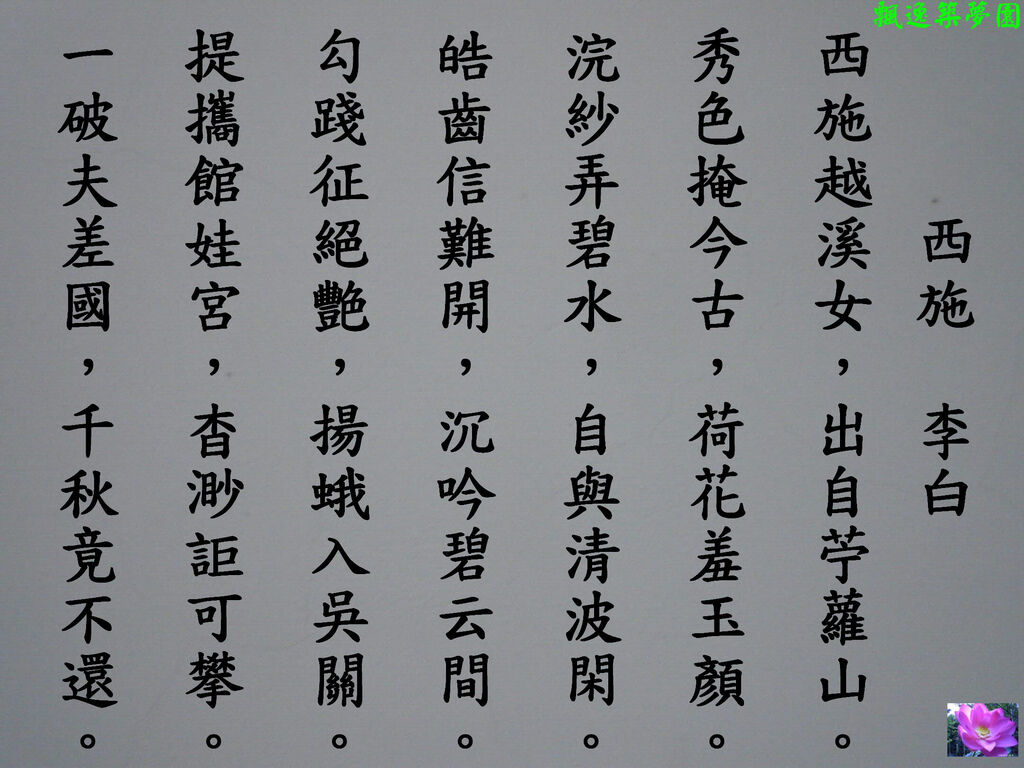 飄逸築夢園
西施　李白
西施越溪女，出自苧蘿山。
秀色掩今古，荷花羞玉顏。
浣紗弄碧水，自與清波閑。
皓齒信難開，沉吟碧云間。
勾踐征絕艷，揚蛾入吳關。
提攜館娃宮，杳渺詎可攀。
一破夫差國，千秋竟不還。